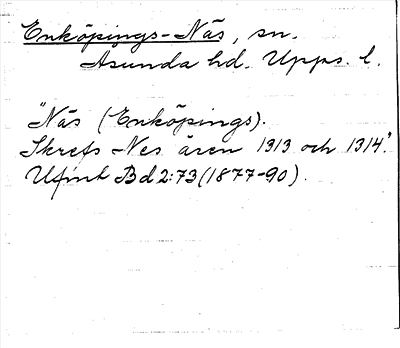 Enköpings-Näs, sn.
Åsunda hd. Upps. l.
"Näs (Enköpings).
Skrefs Nes åren 1313 och 1314".
Ufmt Bd 2:73 (1877-90).